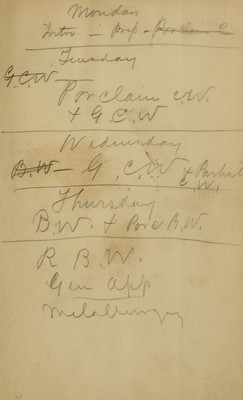 Monday
Intro - Prep - Porclain C
Tuesday
G.C.W
Porclain C.W.
+ G.C.W
Wednesday
B.W - G.C.W + Partial
C.W.
Thursday
B.W. + Porc B.W.
R B.W.
Gen App
Metallurgy